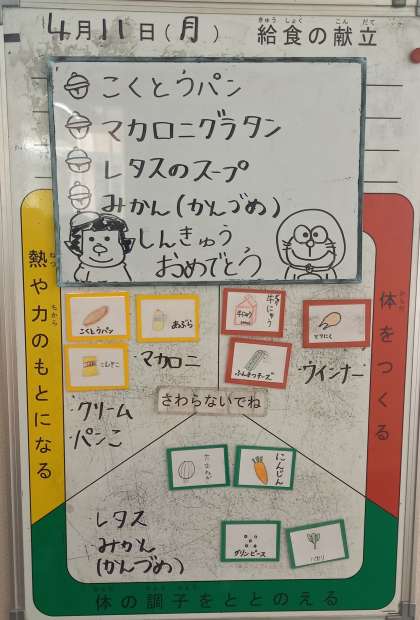 4月11日(月) 給食の献立
きゅう しょく こん だて
こくとうパン
マカロニグラタン
レタスのスープ
みかん(かんづめ)
しんきゅう
おめでとう
熱や力のもとになる
ねつ ちから
体をつくる
からだ
こくとうパン
あぶら
こむぎこ
マカロニ
クリーム
パンこ
牛にゅう
牛にゅう
とりにく
ふんまつチーズ
ウインナー
さわらないでね
たまねぎ
にんじん
グリンピース
パセリ
レタス
みかん
(かんづめ)
体の調子をととのえる